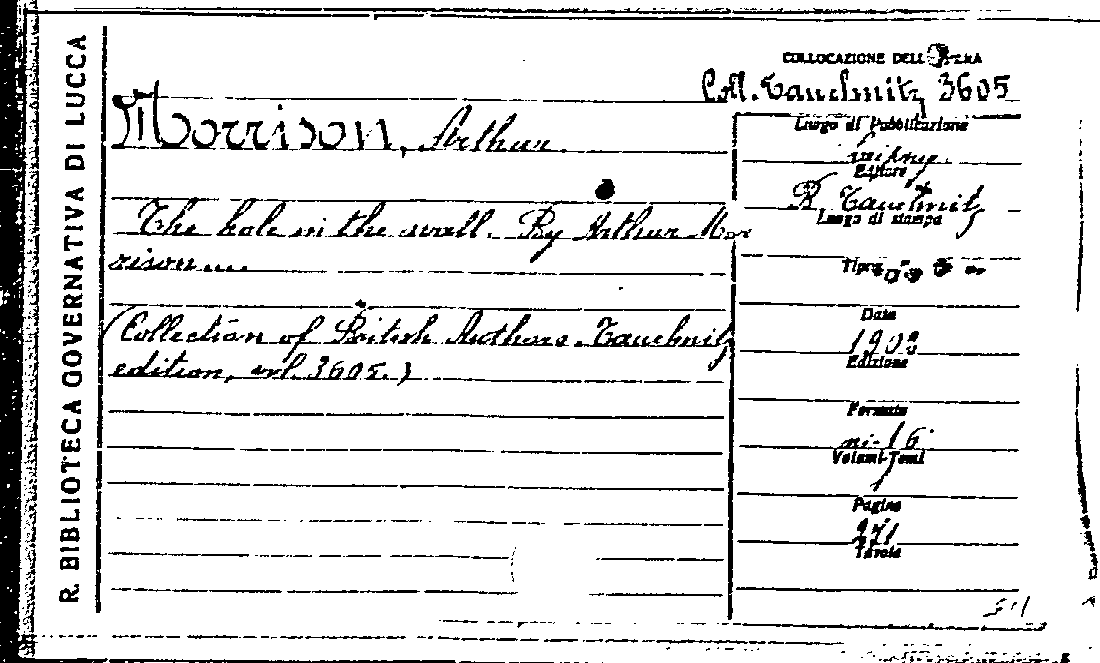 R. BIBLIOTECA GOVERNATIVA DI LUCCA
COLLOCAZIONE DELL'OPERA
Coll. Tauchnitz 3605
Morrison, Arthur.
The hole in the wall. By Arthur Mor
rison....
(Collection of British Authors. Tauchnitz
edition, vol. 3605.)
Luogo di Pubblicazione
Editore
B. Tauchnitz
Luogo di stampa
Tipogr.
Data
Edizione
Formato
in-16°
Volumi-Tomi
1
Pagine
271
Tavole